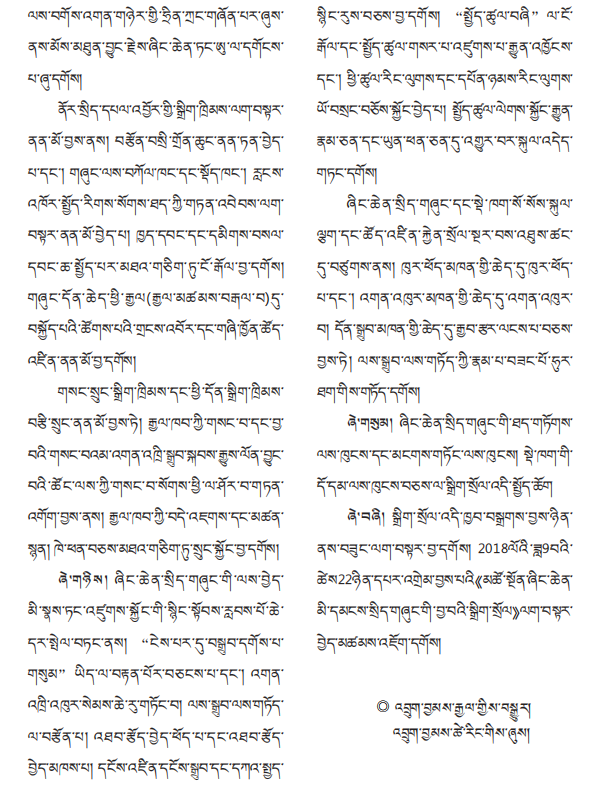 ལས་བགོས་འགན་གཉེར་གྱི་ཧྲིན་ཀྲང་གཞོན་པར་ཞུས་
ནས་མོས་མཐུན་བྱུང་རྗེས་ཞིང་ཆེན་ཏང་ཨུ་ལ་དགོངས་
པ་ཞུ་དགོས།
ནོར་སྲིད་དཔལ་འབྱོར་གྱི་སྒྲིག་ཁྲིམས་ལག་བསྟར་
ནན་མོ་བྱས་ནས། བརྩོན་བསྲི་གྲོན་ཆུང་ནན་ཏན་བྱེད་
པ་དང༌། གཞུང་ལས་བཀོལ་ཁང་དང་སྡོད་ཁང༌། རླངས་
འཁོར་སྤྱོད་རིགས་སོགས་ཐད་ཀྱི་གཏན་འབེབས་ལག་
བསྟར་ནན་མོ་བྱེད་པ། ཁྱད་དབང་དང་དམིགས་བསལ་
དབང་ཆ་སྤྱོད་པར་མཐའ་གཅིག་ཏུ་ངོ་རྒོལ་བྱ་དགོས།
གཞུང་དོན་ཆེད་ཕྱི་རྒྱལ(རྒྱལ་མཚམས་བརྒལ་བ)དུ་
བསྐྱོད་པའི་ཚོགས་པའི་གྲངས་འབོར་དང་གཞི་ཁྱོན་ཚོད་
འཛིན་ནན་མོ་བྱ་དགོས།
གསང་སྲུང་སྒྲིག་ཁྲིམས་དང་ཕྱི་དོན་སྒྲིག་ཁྲིམས་
བརྩི་སྲུང་ནན་མོ་བྱས་ཏེ། རྒྱལ་ཁབ་ཀྱི་གསང་བ་དང་བྱ་
བའི་གསང་བའམ་འགན་འཁྲི་སྒྲུབ་སྐབས་རྒྱུས་ལོན་བྱུང་
བའི་ཚོང་ལས་ཀྱི་གསང་བ་སོགས་ཕྱི་ལ་ཤོར་བ་གཏན་
འགོག་བྱས་ནས། རྒྱལ་ཁབ་ཀྱི་བདེ་འཇགས་དང་མཚན་
སྙན། ཁེ་ཕན་བཅས་མཐའ་གཅིག་ཏུ་སྲུང་སྐྱོང་བྱ་དགོས།
ཞེ་གཉིས། ཞིང་ཆེན་སྲིད་གཞུང་གི་ལས་བྱེད་
མི་སྣས་ཏང་འཛུགས་སྐྱོང་གི་སྙིང་སྟོབས་རླབས་པོ་ཆེ་
དར་སྤེལ་བཏང་ནས། “ངེས་པར་དུ་བསྒྲུབ་དགོས་པ་
གསུམ” ཡིད་ལ་བརྟན་པོར་བཅངས་པ་དང༌། འགན་
འཁྲི་འཁུར་སེམས་ཆེ་རུ་གཏོང་བ། ལས་སྒྲུབ་ལས་གཏོད་
ལ་བརྩོན་པ། འཐབ་རྩོད་བྱེད་ཕོད་པ་དང་འཐབ་རྩོད་
བྱེད་མཁས་པ། དངོས་འཛིན་དངོས་སྒྲུབ་དང་དཀའ་སྤྱད་
སྙིང་རུས་བཅས་བྱ་དགོས། “སྤྱོད་ཚུལ་བཞི” ལ་ངོ་
རྒོལ་དང་སྤྱོད་ཚུལ་གསར་པ་འཛུགས་པ་རྒྱུན་འཁྱོངས་
དང༌། ཕྱི་ཚུལ་རིང་ལུགས་དང་དཔོན་ཉམས་རིང་ལུགས་
ཡོ་བསྲང་བཅོས་སྐྱོང་བྱེད་པ། སྤྱོད་ཚུལ་ལེགས་སྐྱོང་རྒྱུན་
རྣམ་ཅན་དང་ཡུན་ཕན་ཅན་དུ་འགྱུར་བར་སྐུལ་འདེད་
གཏང་དགོས།
ཞིང་ཆེན་སྲིད་གཞུང་དང་སྡེ་ཁག་སོ་སོས་སྐུལ་
ལྕག་དང་ཚོད་འཛིན་རྐྱེན་སྲོལ་སྔར་བས་འཐུས་ཚང་
དུ་བཙུགས་ནས། ཁུར་ཕོད་མཁན་གྱི་ཆེད་དུ་ཁུར་ཕོད་
པ་དང༌། འགན་འཁུར་མཁན་གྱི་ཆེད་དུ་འགན་འཁུར་
བ། དོན་སྒྲུབ་མཁན་གྱི་ཆེད་དུ་རྒྱབ་རྩར་ལངས་པ་བཅས་
བྱས་ཏེ། ལས་སྒྲུབ་ལས་གཏོད་ཀྱི་རྣམ་པ་བཟང་པོ་ཧུར་
ཐག་གིས་གཏོད་དགོས།
ཞེ་གསུམ། ཞིང་ཆེན་སྲིད་གཞུང་གི་ཐད་གཏོགས་
ལས་ཁུངས་དང་མངགས་གཏོང་ལས་ཁུངས། སྡེ་ཁག་གི་
དོ་དམ་ལས་ཁུངས་བཅས་ལ་སྒྲིག་སྲོལ་འདི་སྤྱོད་ཆོག
ཞེ་བཞི། སྒྲིག་སྲོལ་འདི་ཁྱབ་བསྒྲགས་བྱས་ཉིན་
ནས་བཟུང་ལག་བསྟར་བྱ་དགོས། 2018ལོའི་ཟླ9བའི་
ཚེས22ཉིན་དཔར་འགྲེམ་བྱས་པའི《མཚོ་སྔོན་ཞིང་ཆེན་
མི་དམངས་སྲིད་གཞུང་གི་བྱ་བའི་སྒྲིག་སྲོལ》ལག་བསྟར་
བྱེད་མཚམས་འཇོག་དགོས།
◎ འབྲུག་བྱམས་རྒྱལ་གྱིས་བསྒྱུར།
འབྲུག་བྱམས་ཚེ་རིང་གིས་ཞུས།